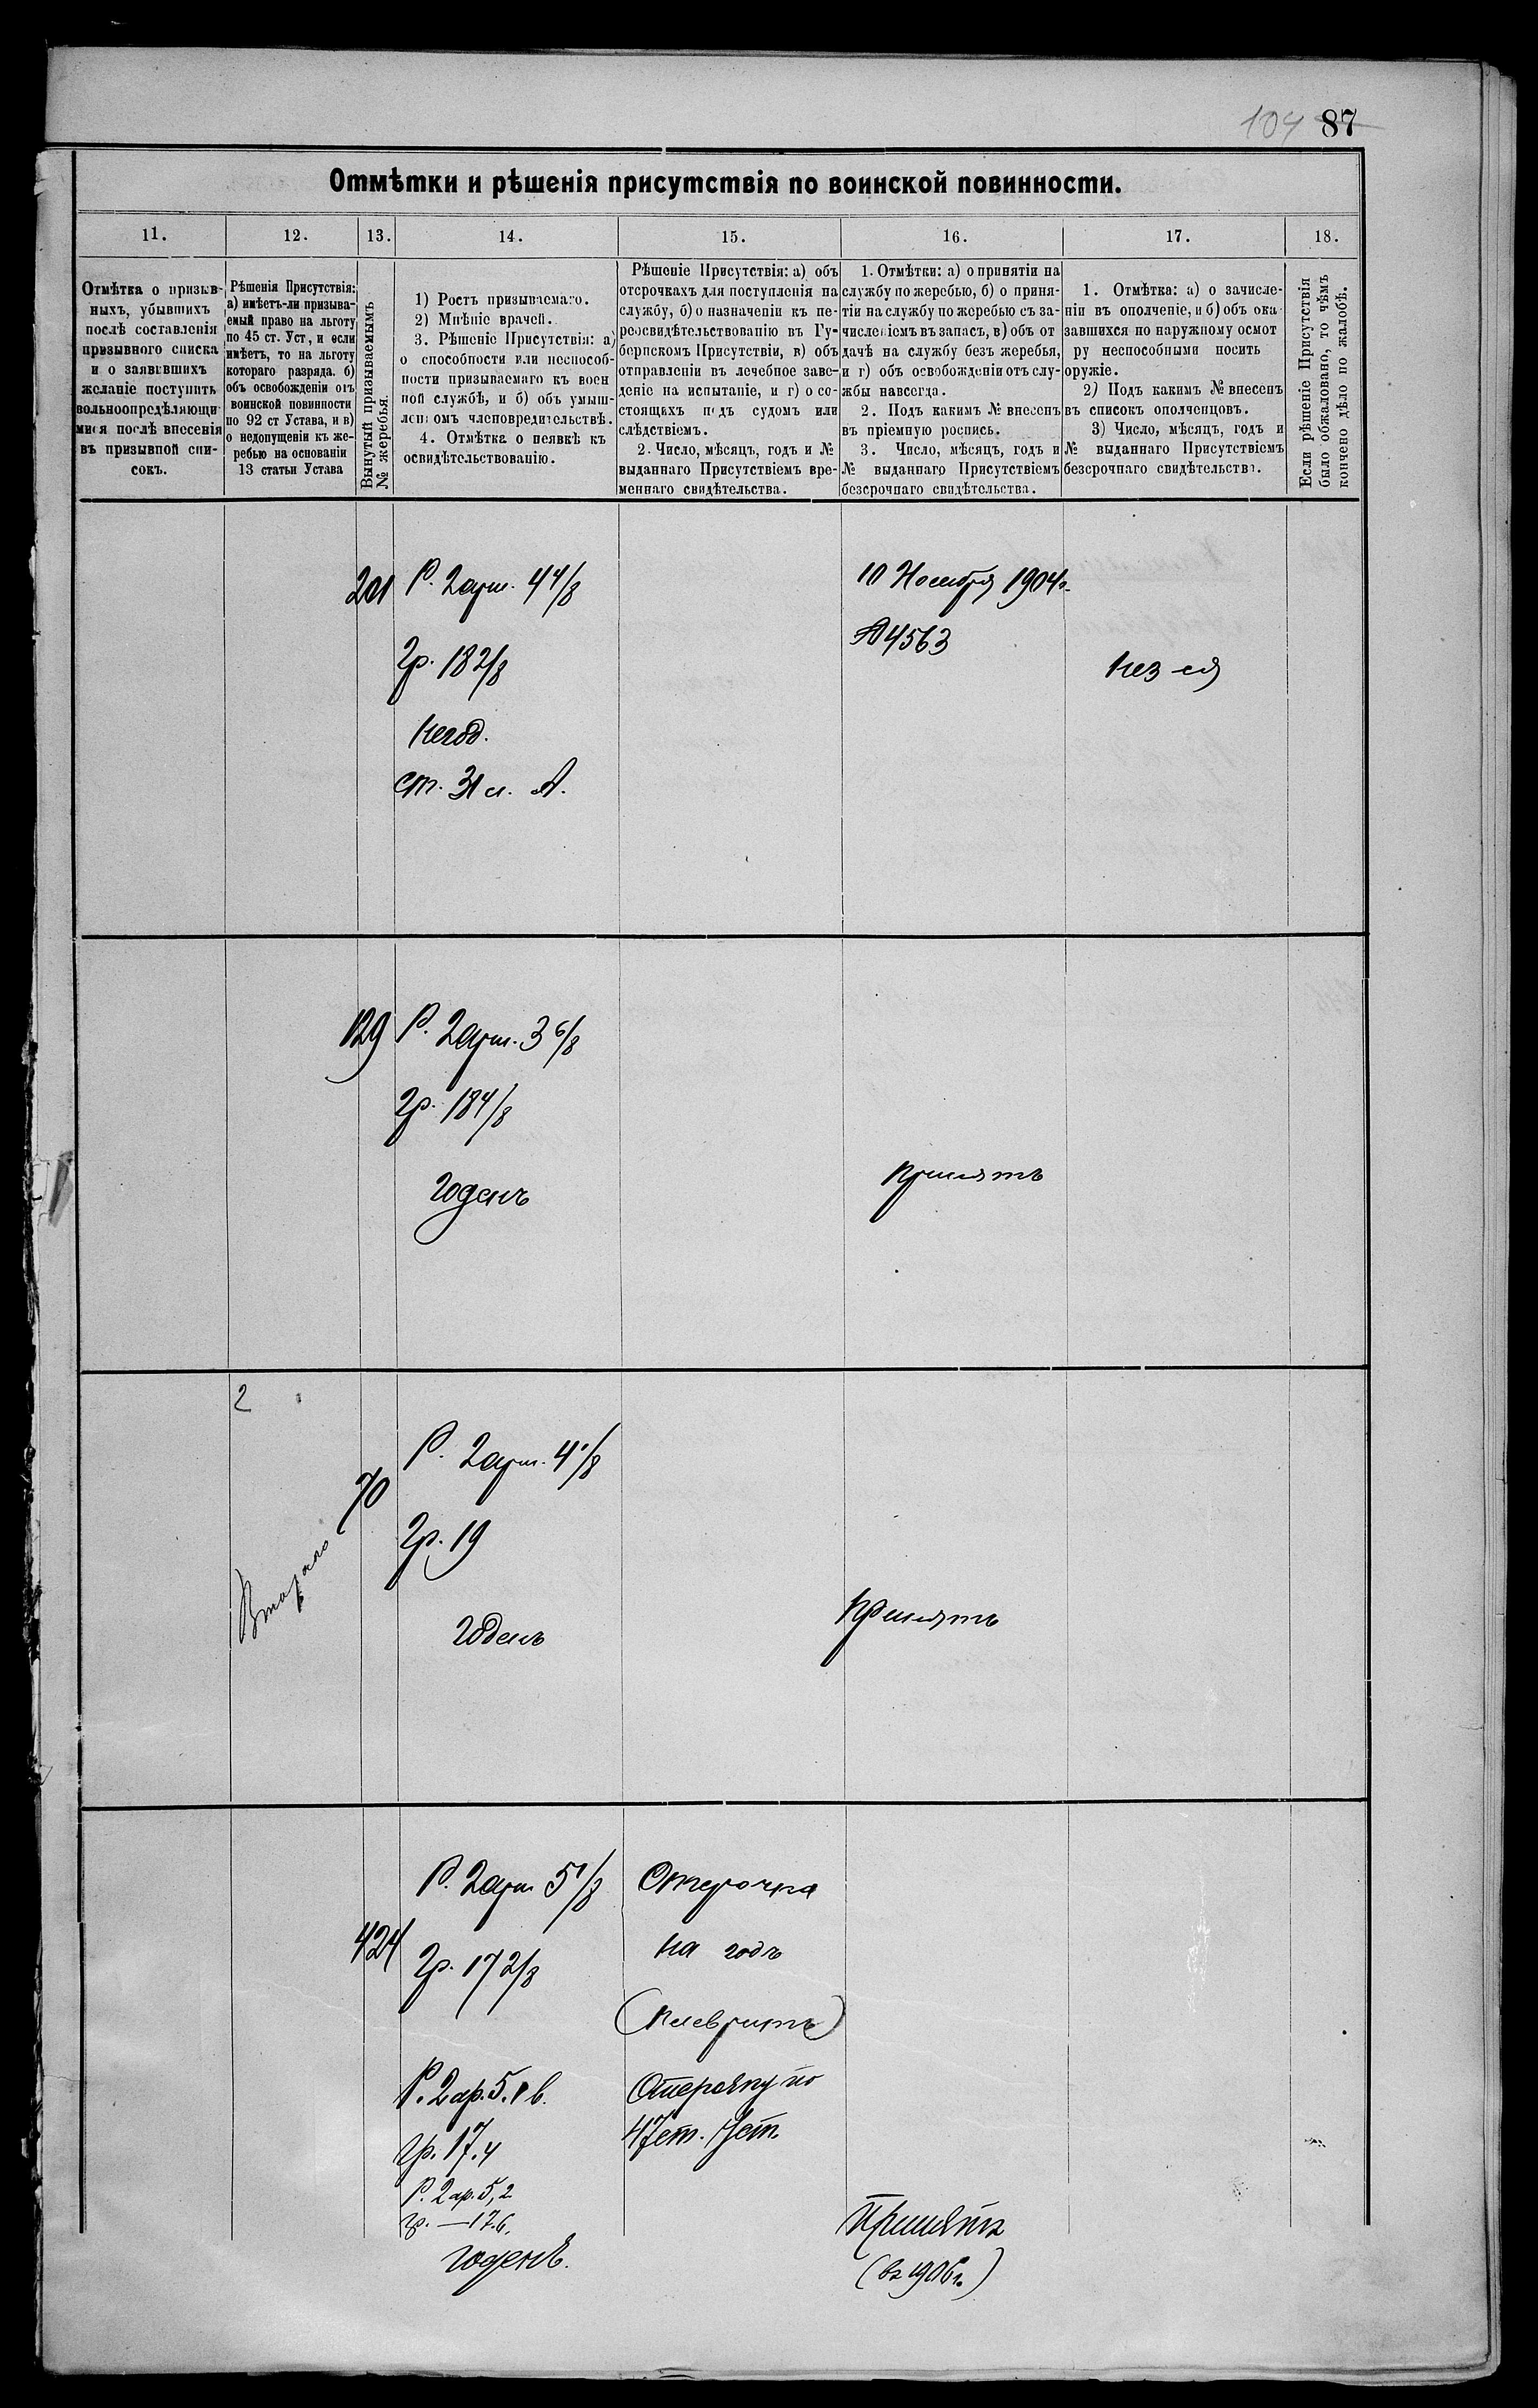 104 87
Отмѣтки и рѣшенія присутствія по воинской повинности.
11. 12. 13. 14. 15. 16. 17. 18.
Отмѣтка о призыв-
ныхъ, убывшихъ
послѣ составленія
призывного списка
и о заявившихъ
желаніе поступить
вольноопредѣляющи-
мися послѣ внесенія
въ призывной спи-
сокъ.
Рѣшенія Присутствія:
а) имѣетъ-ли призыва-
емый право на льготу
по 45 ст. Уст, и если
имѣетъ, то на льготу
котораго разряда. б)
объ освобожденіи отъ
воинской повинности
по 92 ст Устава, и в)
о недопущеніи къ же-
ребью на основаніи
13 статьи Устава
Вынутый призываемымъ
№ жеребья.
1) Ростъ призываемаго.
2) Мнѣніе врачей.
3. Рѣшеніе Присутствія: а)
о способности или неспособ-
ности призываемаго къ воен
ной службѣ, и б) объ умыш-
ленномъ членовредительствѣ.
4. Отмѣтка о неявкѣ къ
освидѣтельствованію.
Рѣшеніе Присутствія: а) объ
отсрочкахъ для поступленія на
службу, б) о назначеніи къ пе-
реосвидѣтельствованію въ Гу-
бернскомъ Присутствіи, в) объ
отправленіи въ лечебное заве-
деніе на испытаніе, и г) о со-
стоящихъ подъ судомъ или
слѣдствіемъ.
2. Число, мѣсяцъ, годъ и №
выданнаго Присутствіемъ вре-
меннаго свидѣтельства.
1. Отмѣтки: а) о принятіи на
службу по жеребью, б) о приня-
тіи на службу по жеребью съ за-
численіемъ въ запасъ, в) объ от
дачѣ на службу безъ жеребья,
и г) объ освобожденіи отъ слу-
жбы навсегда.
2. Подъ какимъ № внесенъ
въ пріемную роспись.
3. Число, мѣсяцъ, годъ и
№ выданнаго Присутствіемъ
безсрочнаго свидѣтельства.
1. Отмѣтка: а) о зачисле-
ніи въ ополченіе, и б) объ ока
завшихся по наружному осмот
ру неспособными носить
оружіе.
2) Подъ какимъ № внесенъ
въ списокъ ополченцовъ.
3) Число, мѣсяцъ, годъ и
№ выданнаго Присутствіемъ
безсрочнаго свидѣтельства.
Если рѣшеніе Присутствія
было обжаловано, то чѣмъ
кончено дѣло по жалобѣ.
201 Р. 2 арш. 4 4/8
гр. 18 2/8
негод.
ст. 31 л. А.
10 Ноября 1904 г.
№ 4563
129 Р. 2 арш. 3 6/8
гр. 18 4/8
годенъ
принятъ
2
Второго
70
Р. 2 арш. 4 1/8
гр. 19
годенъ
принятъ
424
Р. 2 арш 5 1/8
гр. 17 2/8
Отсрочка
на годъ
(плевритъ)
Р. 2 ар. 5. 1 в.
гр. 17. 4
Отсрочку по
47 ст. Уст.
Р. 2 ар. 5, 2
гр. — 17. 6.
годенъ.
Принятъ
(въ 1906 г.)